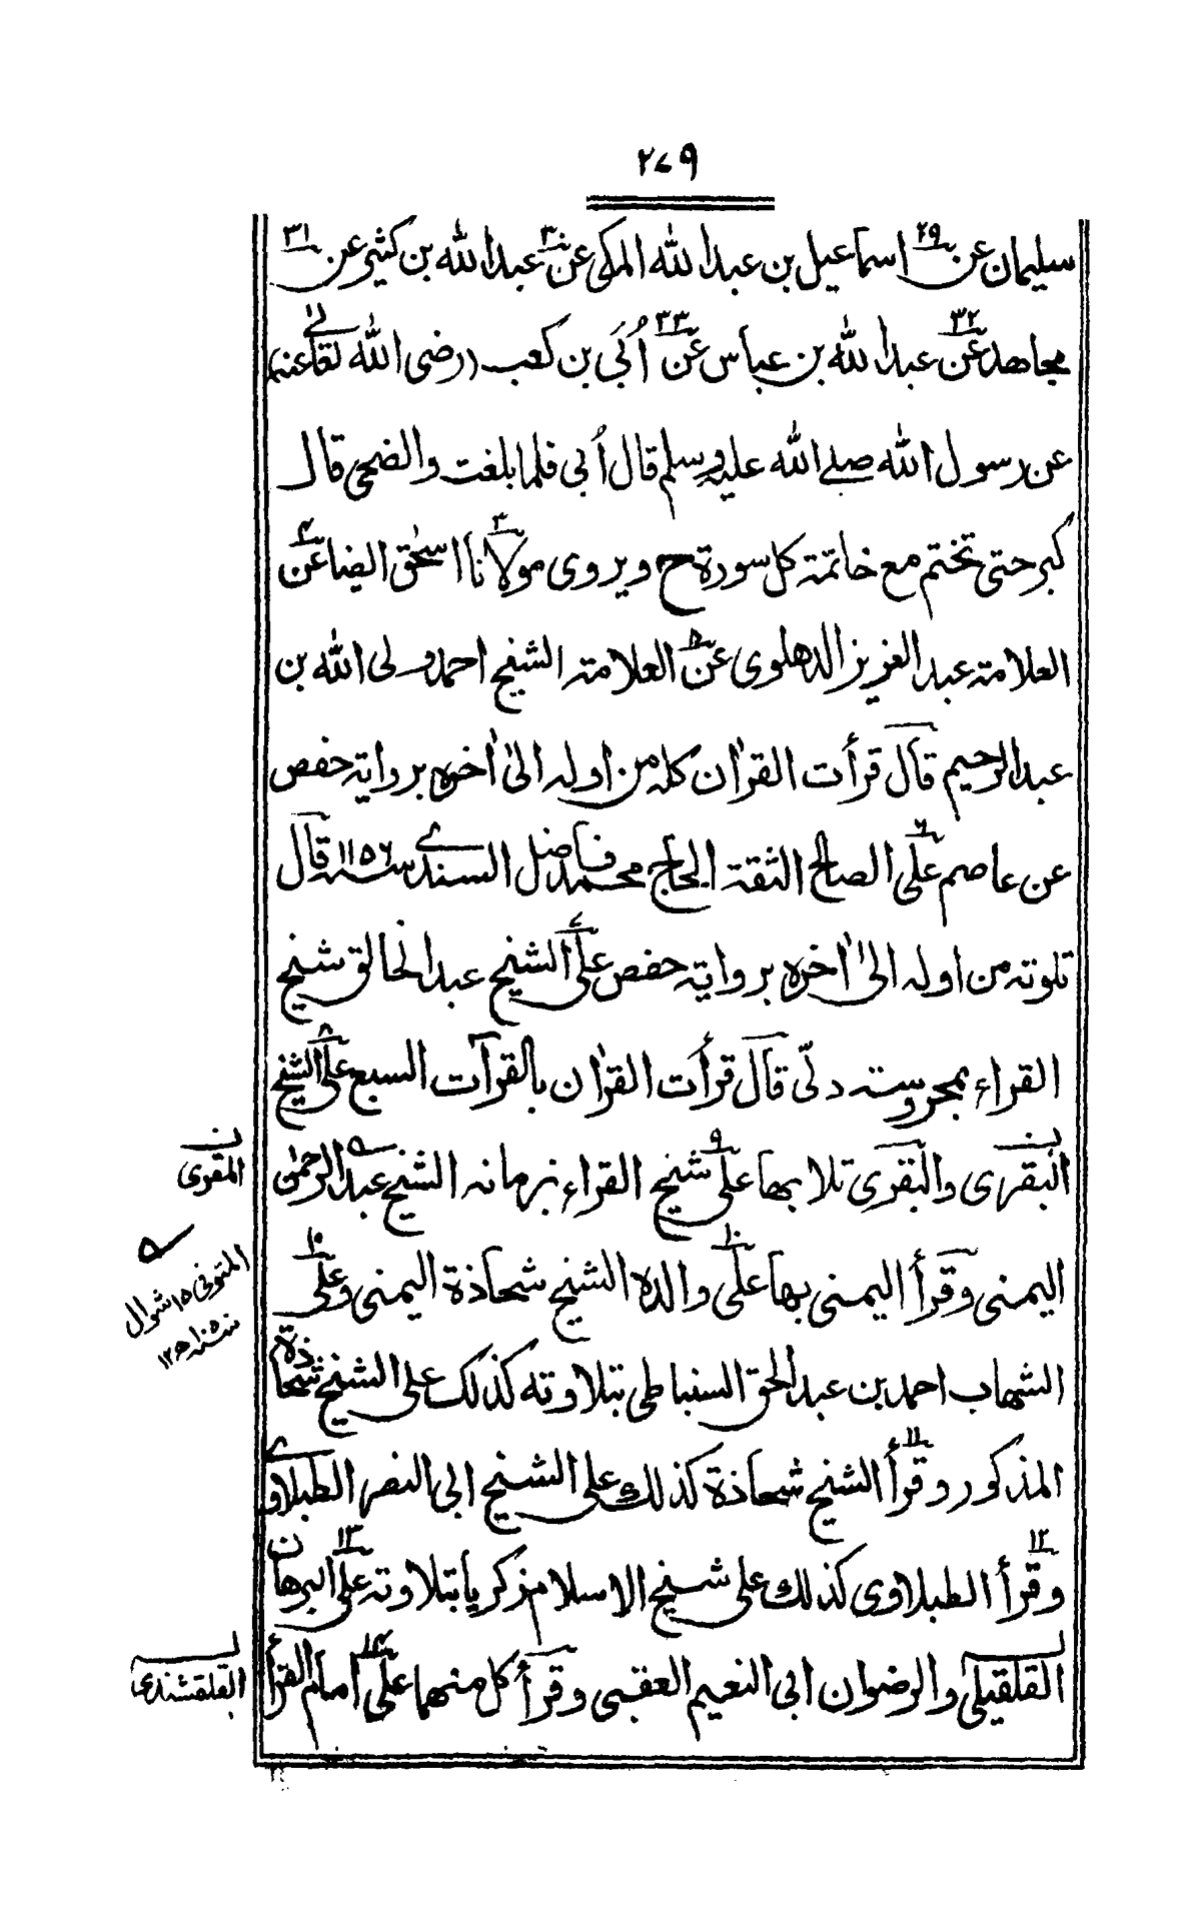 ۲۷۹
سلیمان عن ۲۹ اسماعیل بن عبد الله المکی عن ۳۰ عبد الله بن کثیر عن ۳۱
مجاهد عن ۳۲ عبد الله بن عباس عن ۳۳ اُبَی بن کعب (رضی الله تعالیٰ عنهم)
عن رسول الله صلے الله علیه وسلم قال اُبی فلما بلغت والضحی قال
کبر حتی تختم مع خاتمة کل سورة ح ویروی مولانا ۳ اسحٰق ایضا عن ۴
العلامة عبد العزیز الدهلوی عن ۵ العلامة الشیخ احمد ولی الله بن
عبد الرحیم قال قرأت القرآن کله من اوله الیٰ اٰخره بروایة حفص
عن عاصم علی ۶ الصالح الثقة الحاج محمد فاضل السندی سنه ۱۱۵۶ قال
تلوته من اوله الیٰ اٰخره بروایة حفص علی ۷ الشیخ عبد الخالق شیخ
القراء بمحروسة دلّی قال قرأت القرآن بالقرآت السبع علی ۸ الشیخ
البقری والبقری تلا بها علی ۹ شیخ القراء بزمانه الشیخ عبد الرحمٰن
المقری
الیمنی وقرأ الیمنی بها علی ۱۰ والده الشیخ شحاذة الیمنی وعلی ۱۰
المتوفی ۱۵ شوال
الشهاب احمد بن عبد الحق السنباطی بتلاوته کذلک علی الشیخ شحاذة
المذکور وقرأ ۱۱ الشیخ شحاذة کذلک علی الشیخ ابی النصر الطبلاوی
وقرأ ۱۲ الطبلاوی کذلک علی شیخ الاسلام زکریا بتلاوته علی ۱۳ البرهان
القلقیلی والرضوان ابی النعیم العقبی وقرأ کل منهما علی ۱۴ امام القرأ
القلقشندی